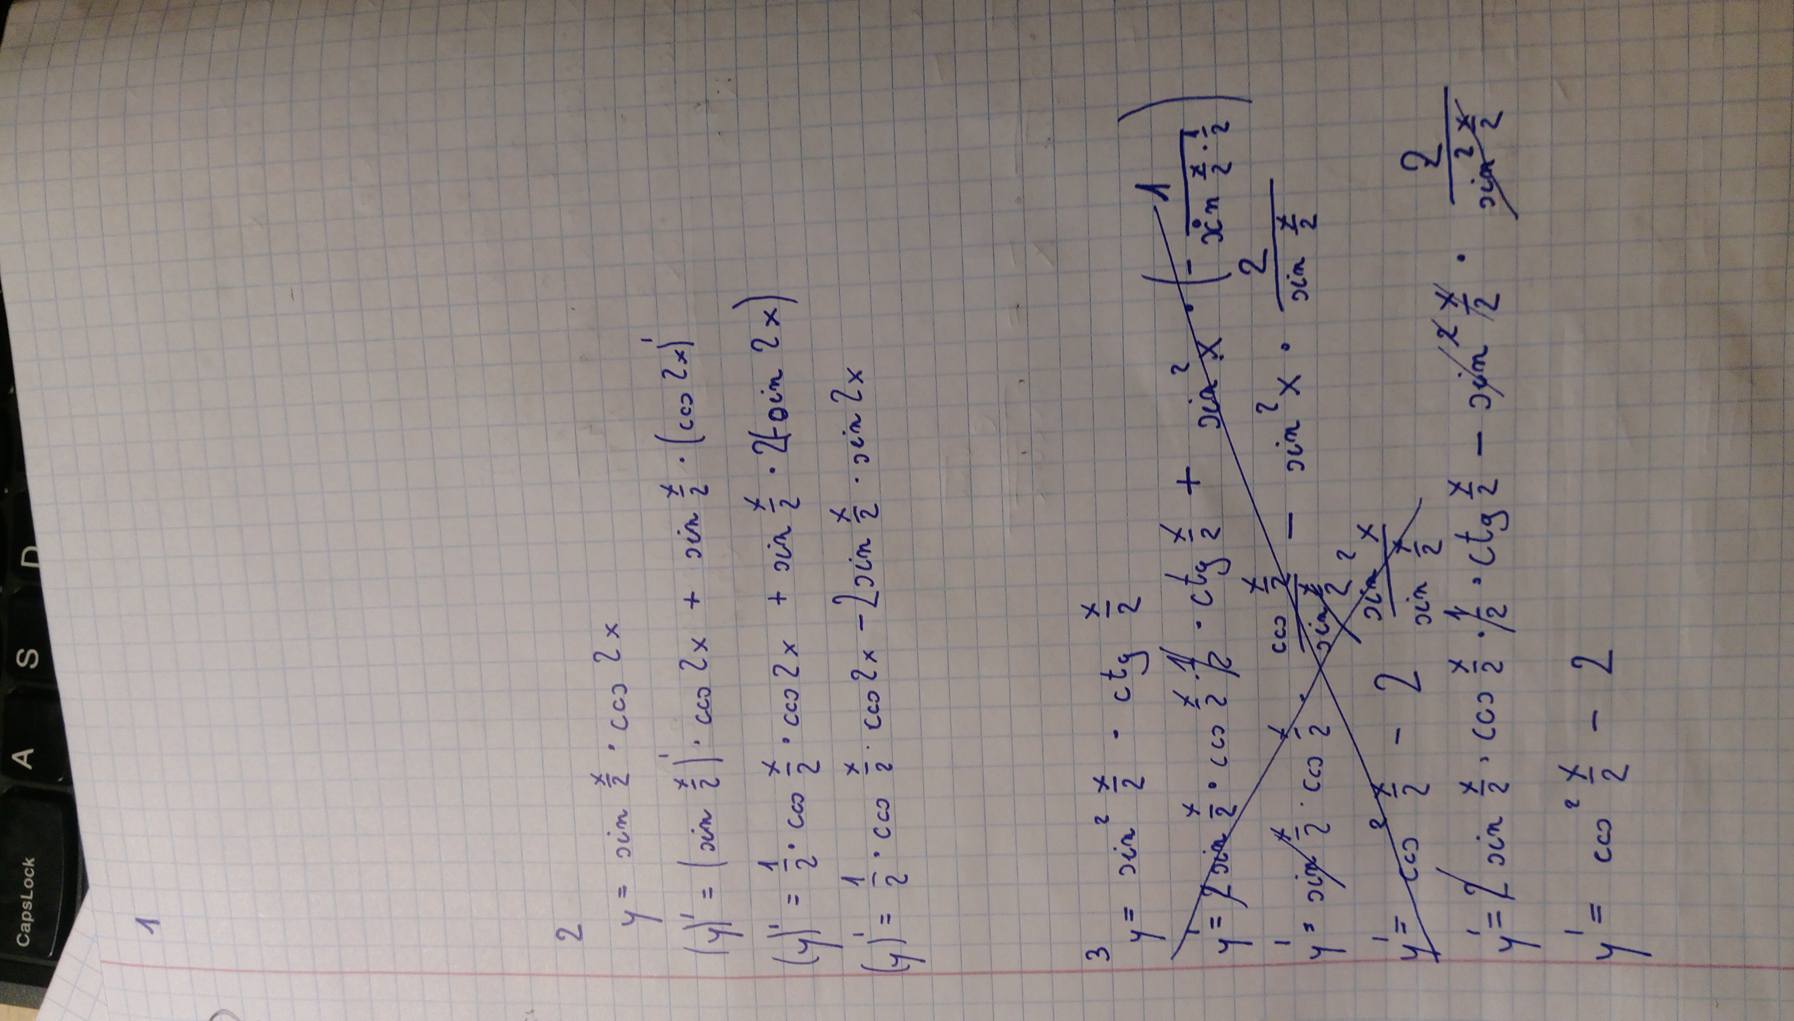 CapsLock A S D
1
2
y = sin x/2 · cos 2x
(y)' = (sin x/2)' · cos 2x + sin x/2 · (cos 2x)'
(y)' = 1/2 · cos x/2 · cos 2x + sin x/2 · 2(-sin 2x)
(y)' = 1/2 · cos x/2 · cos 2x - 2 sin x/2 · sin 2x
3
y = sin² x/2 · ctg x/2
y' = 2 sin x/2 · cos x/2 · 1/2 · ctg x/2 + sin² x · (- 1/(sin x/2 · 1/2))
y' = sin x/2 · cos x/2 · (cos x/2)/(sin x/2) - sin² x · 2/(sin x/2)
y' = cos² x/2 - 2 (sin² x)/(sin x/2)
y' = 2 sin x/2 · cos x/2 · 1/2 · ctg x/2 - sin² x/2 · 2/(sin² x/2)
y' = cos² x/2 - 2